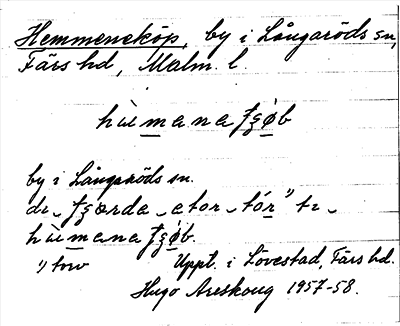 Hemmeneköp, by i Långaröds sn,
Färs hd, Malm. l
hùmanaʃʒøb
by i Långaröds sn.
de ʃʒørda etor tór ¹⁾ te
hùmanaʃʒøb.
¹⁾ torv Uppt. i Lövestad, Färs hd.
Hugo Areskoug 1957-58.